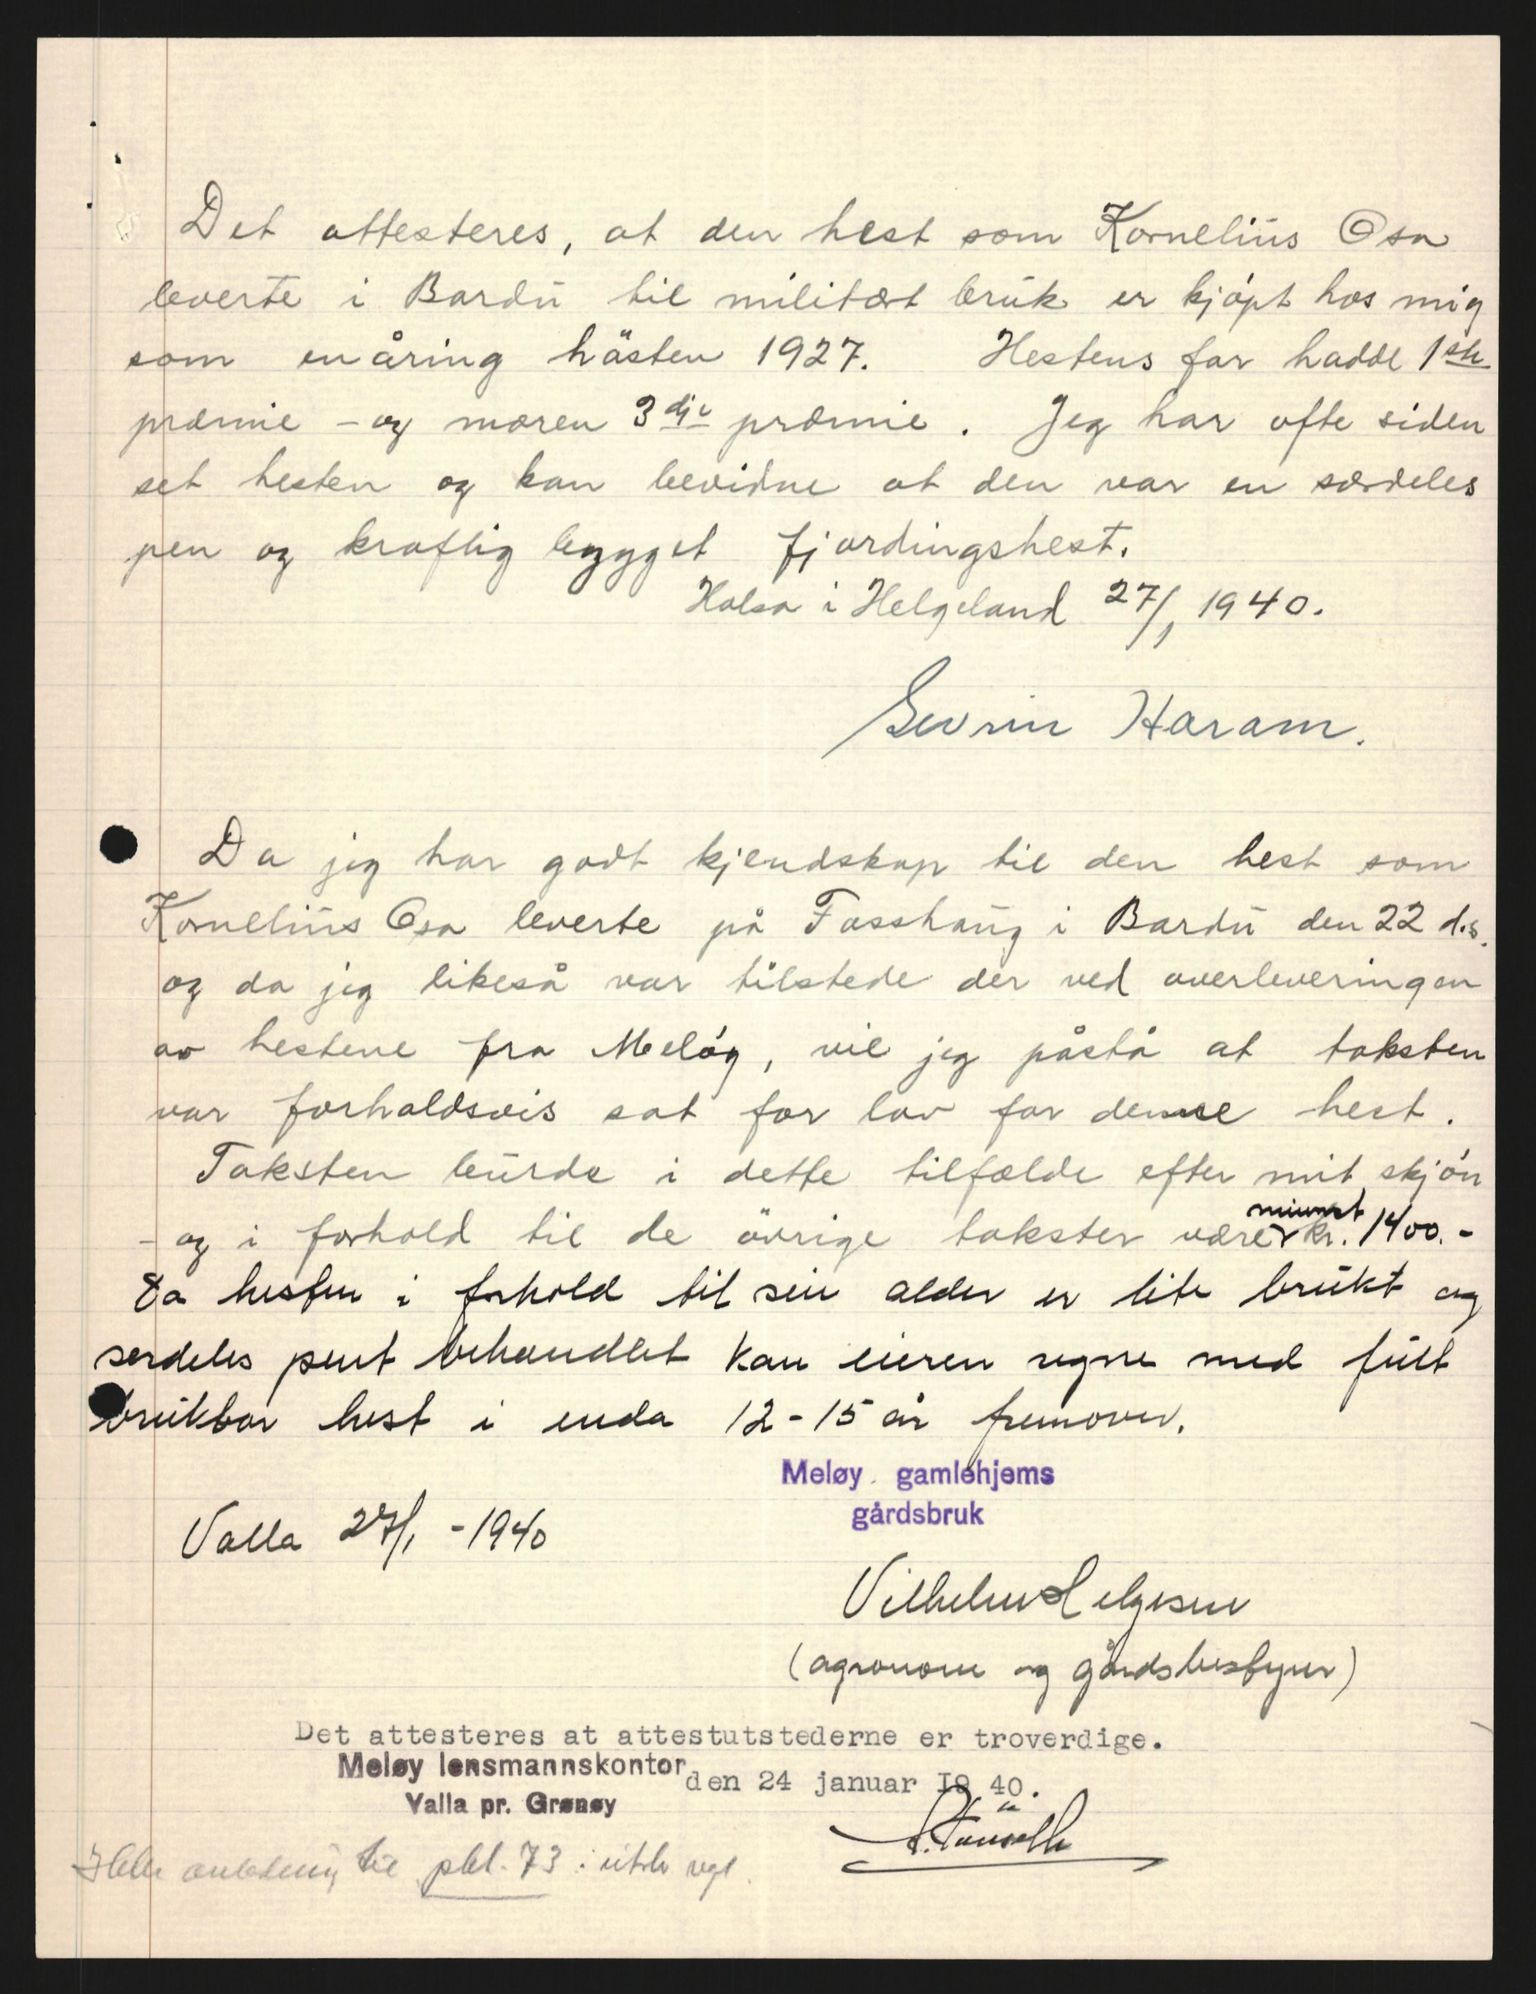 Det attesteres, at den hest som Kornelius Osa
leverte i Bardu til militært bruk er kjøpt hos mig
som enåring hösten 1927. Hestens far hadde 1ste
præmie - og moren 3dje præmie. Jeg har ofte siden
set hesten og kan bevidne at den var en særdeles
pen og kraftig bygget fjordingshest.
Halsa i Helgeland 27/1 1940.
Sevrin Haram.
Da jeg har godt kjendskap til den hest som
Kornelius Osa leverte på Fosshaug i Bardu den 22 d.s.
og da jeg likeså var tilstede der ved overleveringen
av hestene fra Meløy, vil jeg påstå at taksten
var forholdsvis sat for lav for denne hest.
Taksten burde i dette tilfælde efter mit skjøn
- og i forhold til de övrige takster være minnst kr. 1400.-
Da hesten i forhold til sin alder er lite brukt og
serdeles pent behandlet kan eieren regne med fullt
brukbar hest i enda 12-15 år fremover.
Meløy gamlehjems
gårdsbruk
Valla 27/1 -1940
Vilhelm Helgesen
(agronom og gårdsbestyrer)
Det attesteres at attestutstederne er troverdige.
Meløy lensmannskontor
den 24 januar 19 40.
Valla pr. Grønøy
til pkt. 73 i